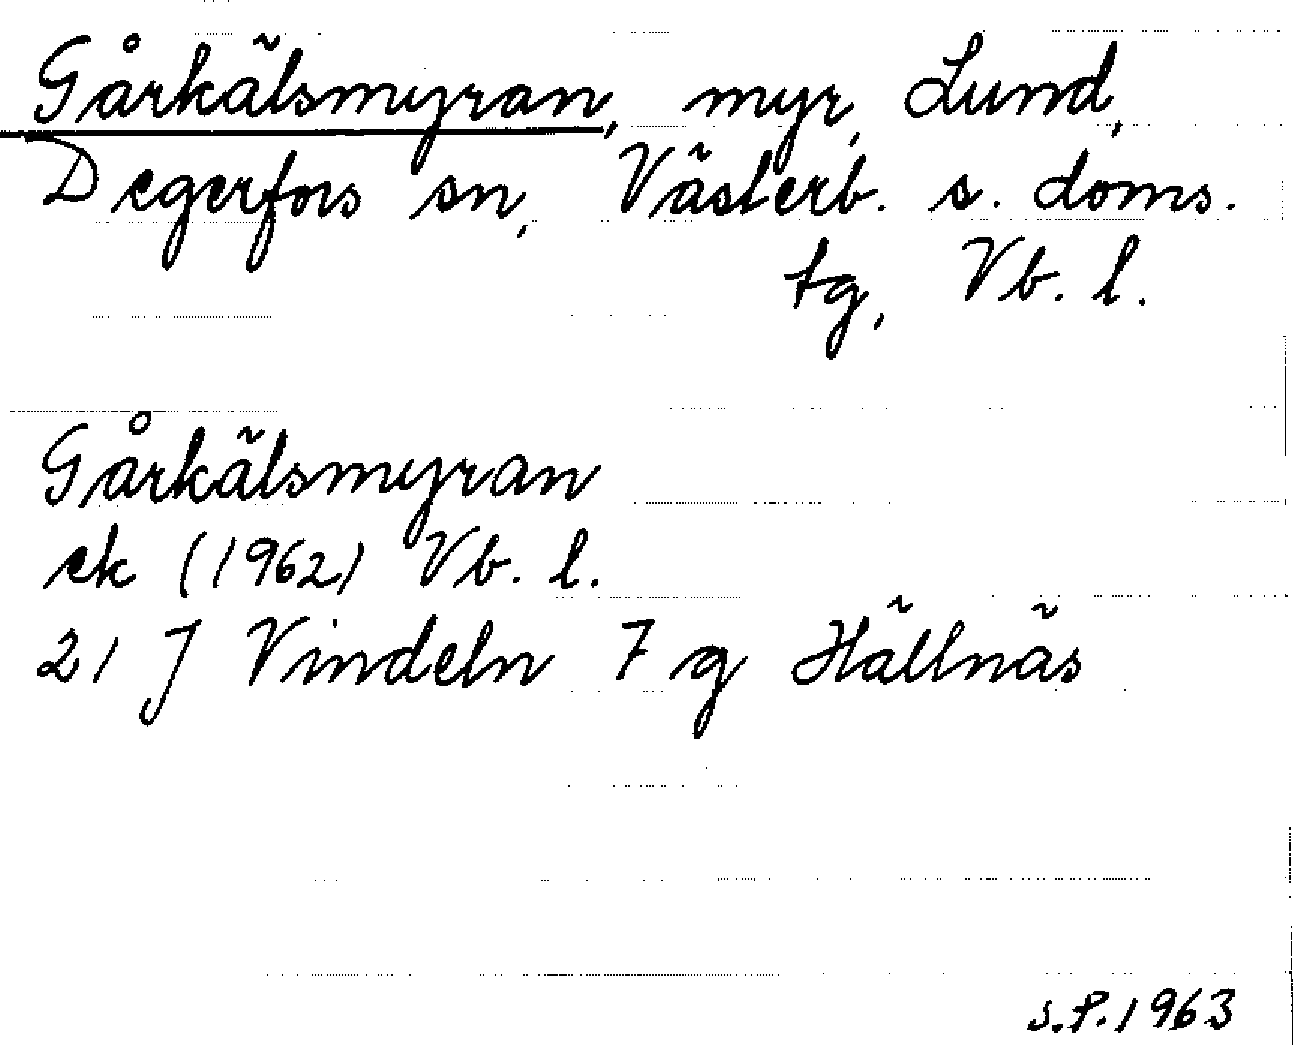 Gårkälsmyran, myr, Lund,
Degerfors sn, Västerb. s. doms.
tg, Vb. l.
Gårkälsmyran
ek (1962) Vb. l.
21 J Vindeln 7 g Hällnäs
S.P. 1963